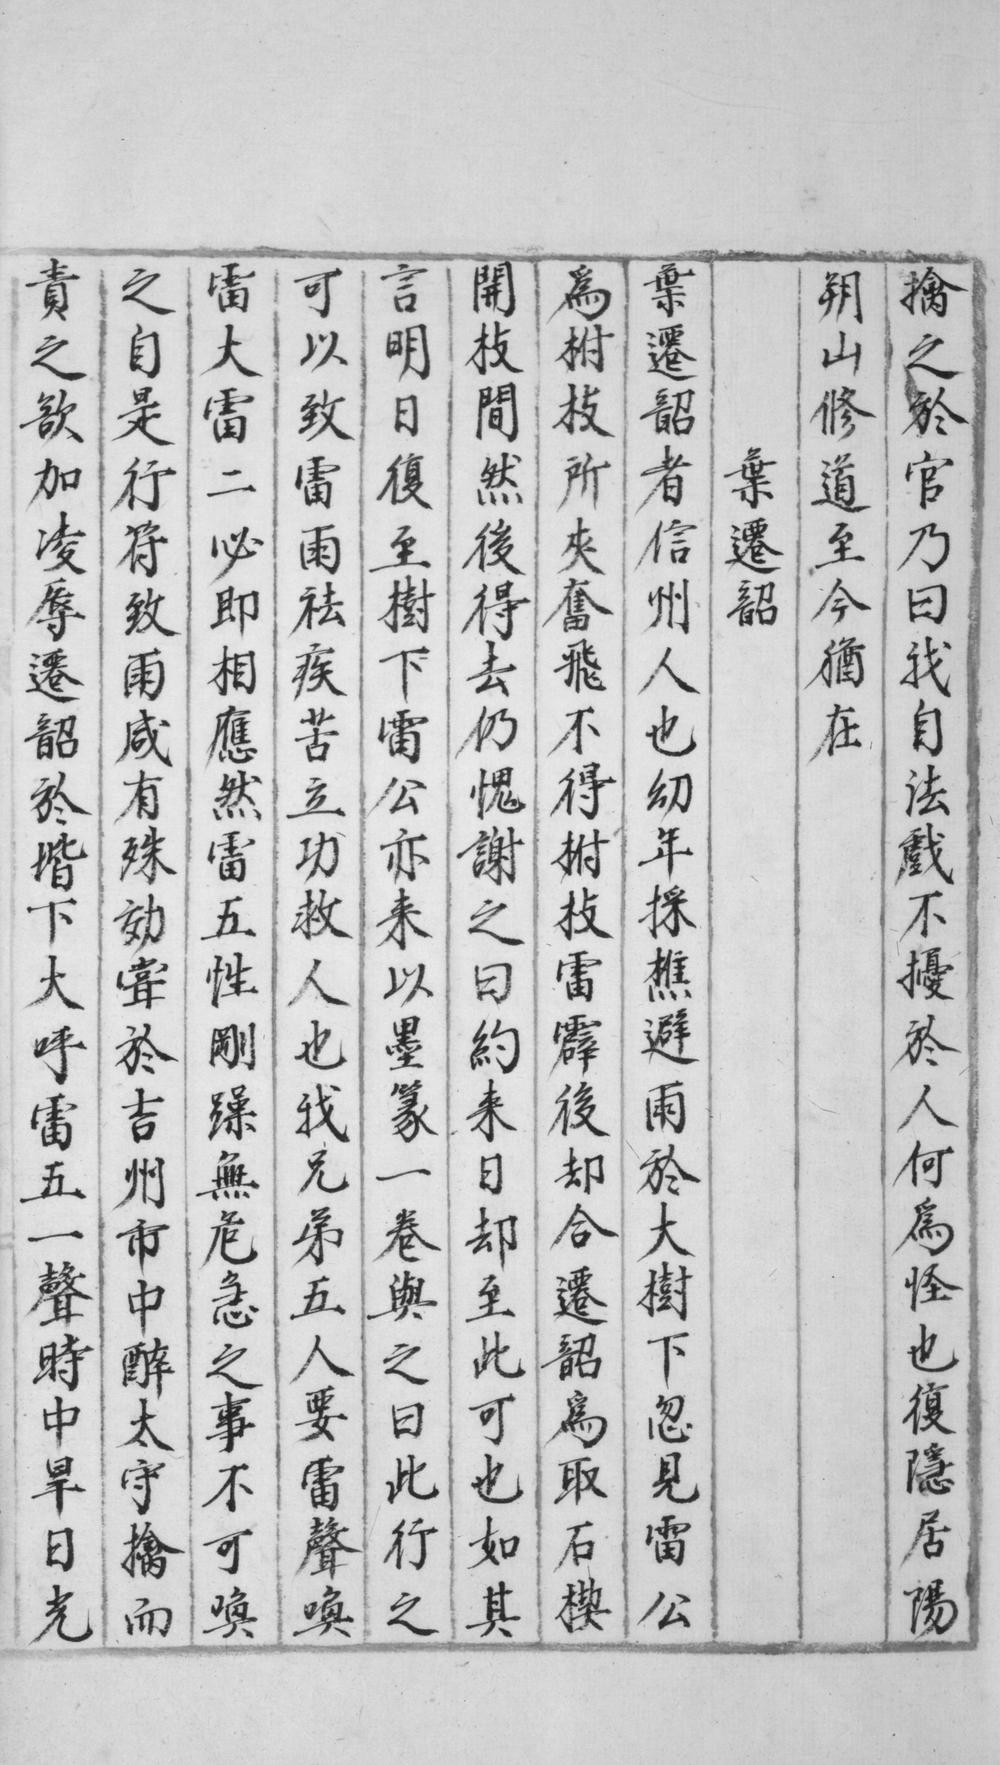 擒之於官乃曰我自法戲不擾於人何為怪也復隱居陽
朔山修道至今猶在
葉遷韶
葉遷韶者信州人也幼年採樵避雨於大樹下忽見雷公
為柎枝所夾奮飛不得柎枝雷霹後却合遷韶為取石楔
開枝間然後得去仍愧謝之曰約来日却至此可也如其
言明日復至樹下雷公亦来以墨篆一卷與之曰此行之
可以致雷雨祛疾苦立功救人也我兄弟五人要雷聲喚
雷大雷二必即相應然雷五性剛躁無危急之事不可喚
之自是行符致雨咸有殊効甞於吉州市中醉太守擒而
責之欲加凌辱遷韶於堦下大呼雷五一聲時中旱日光